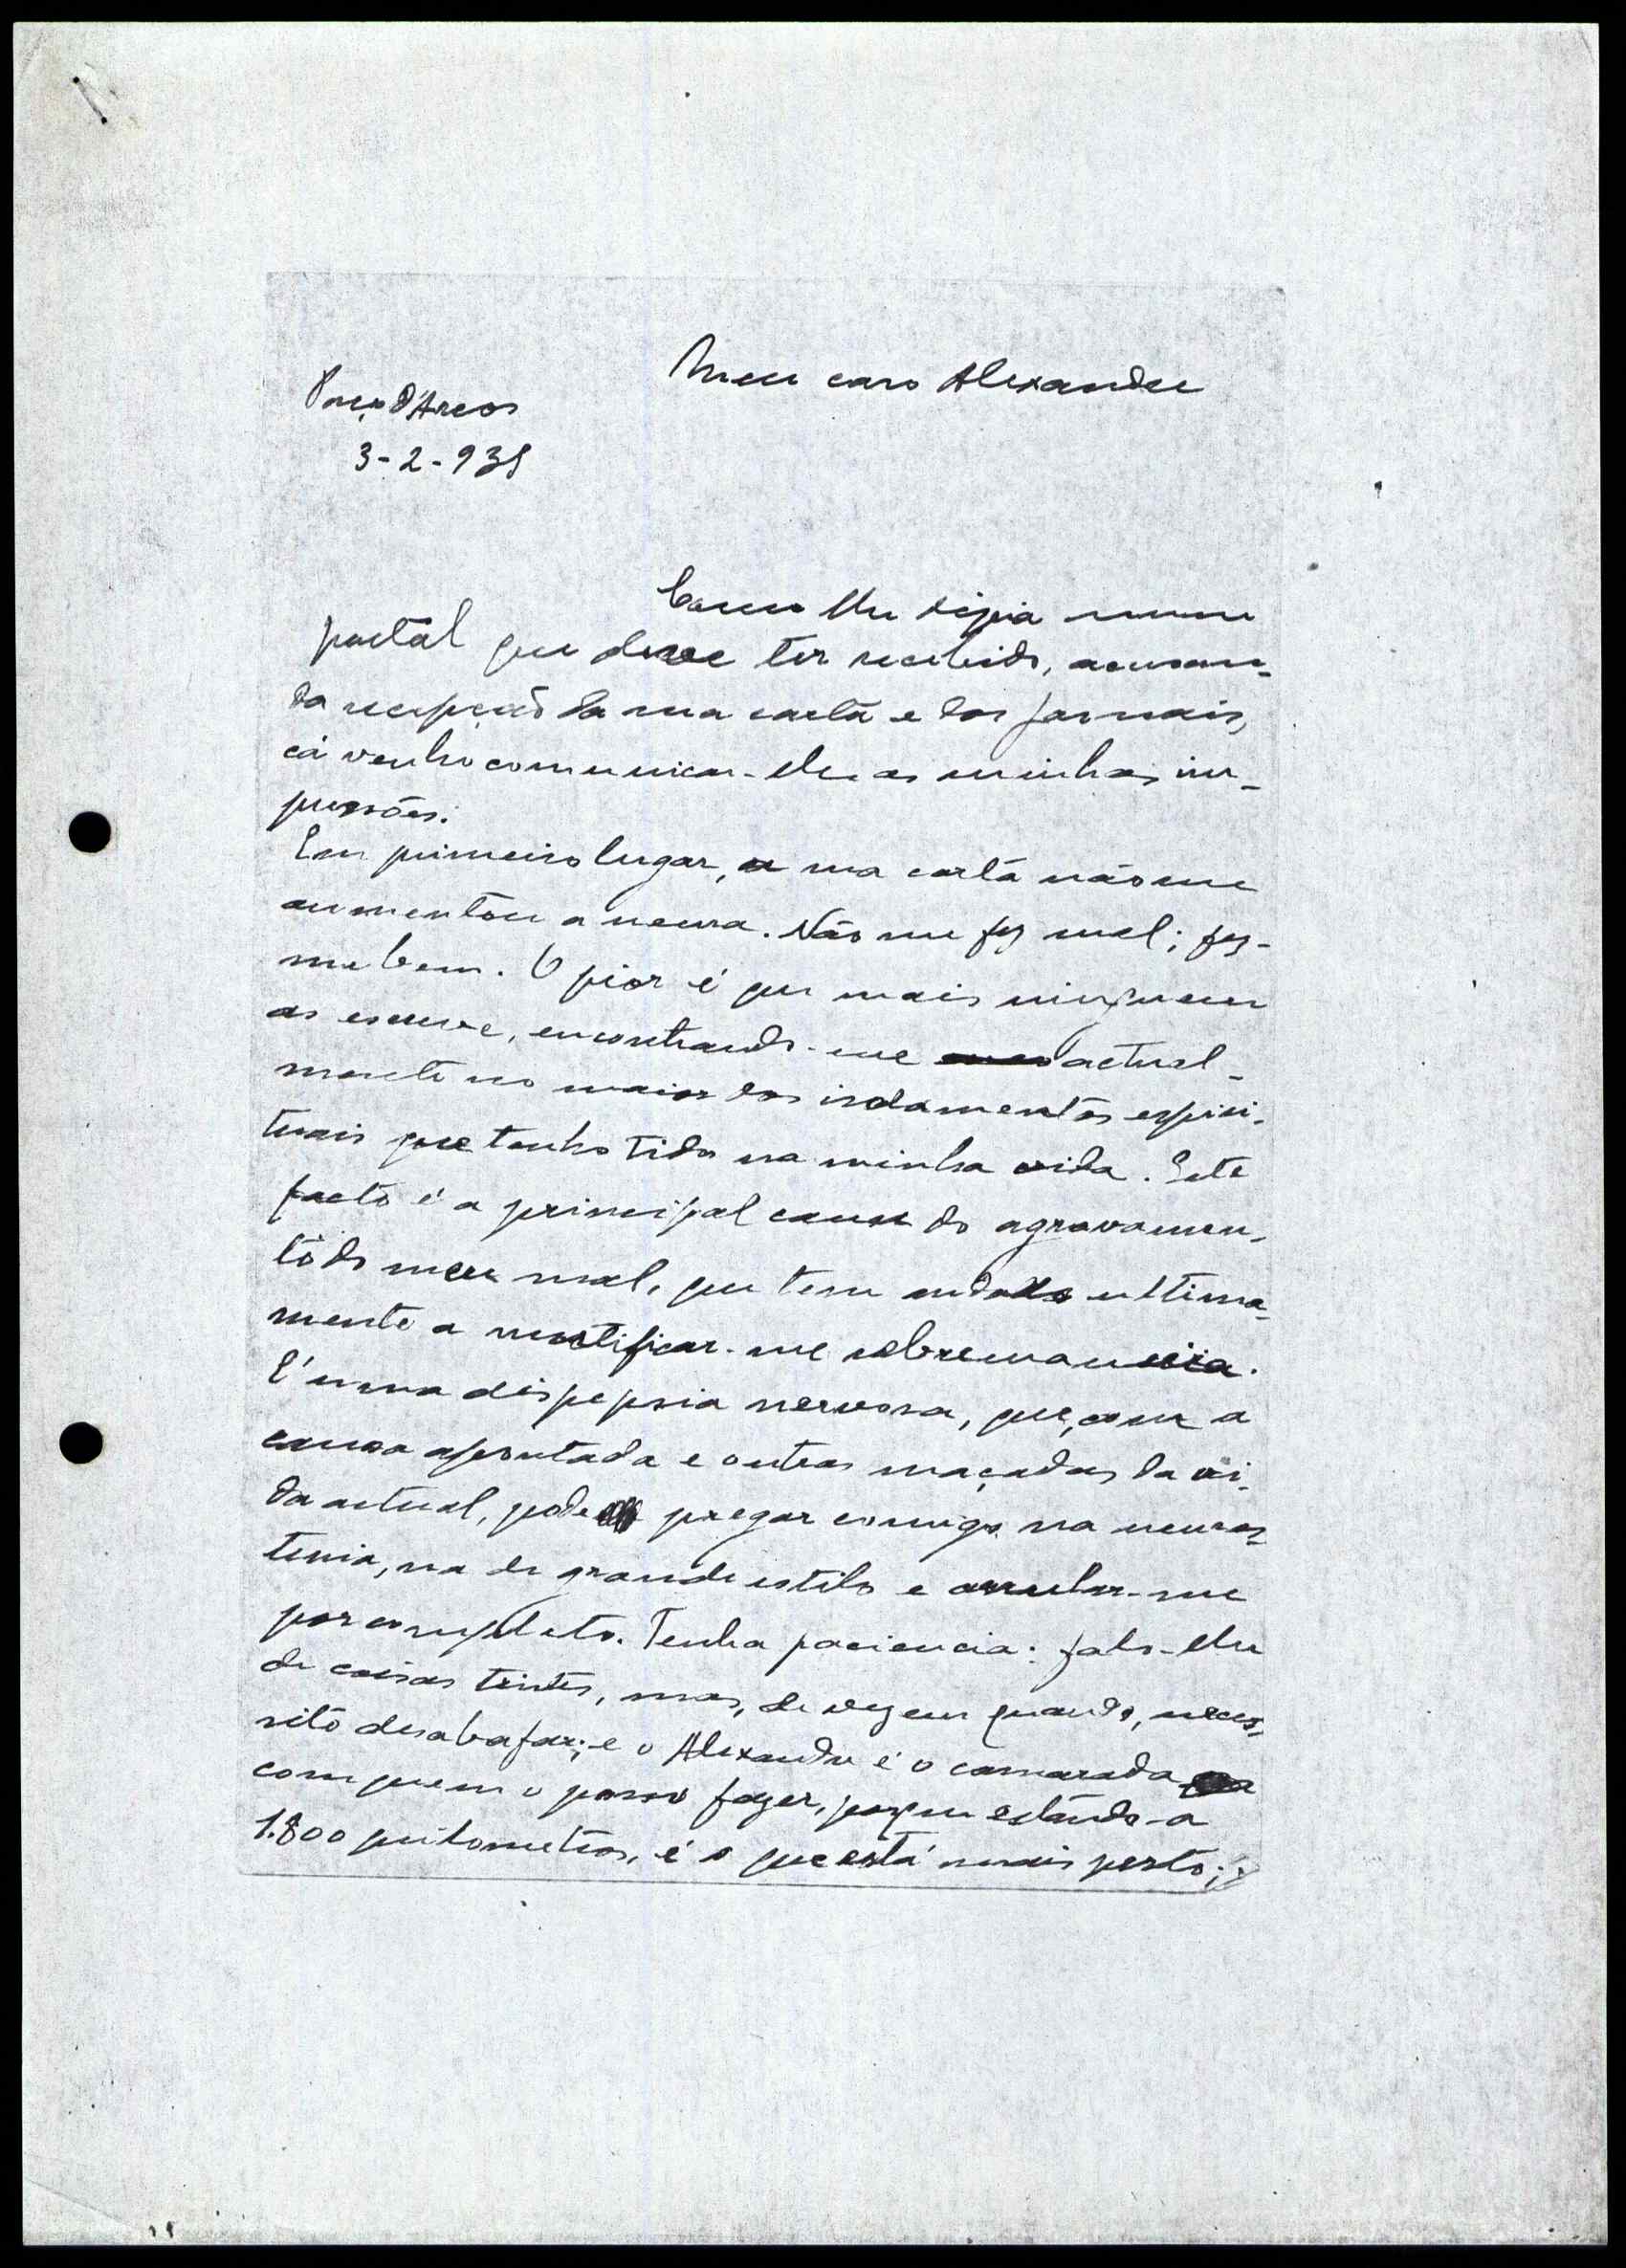 Meu caro Alexandre
Paço d'Arcos
3-2-935
Como lhe dizia num
postal que deve ter recebido, acusan-
do recepção da sua carta e dos jornais,
cá venho comunicar-lhe as minhas im-
pressões.
Em primeiro lugar, a sua carta não me
aumentou a neura. Não me fez mal; fez-
me bem. O pior é que mais ninguem
as escreve, encontrando-me actual-
mente no maior dos isolamentos espiri-
tuais que tenho tido na minha vida. Este
facto é a principal causa do agravamen-
to do meu mal, que tem andado ultima-
mente a mortificar-me sobremaneira.
É uma dispepsia nervosa, que, com a
causa apontada e outras maçadas da vi-
da actual, pode pregar comigo na neuras-
tenia, na de grande estilo e arrular-me
por completo. Tenha paciencia: falo-lhe
de coisas tristes, mas, de vez em quando, neces-
sito desabafar; e o Alexandre é o camarada
com quem o posso fazer, porque estando a
1.800 quilometros, é o que está mais perto;